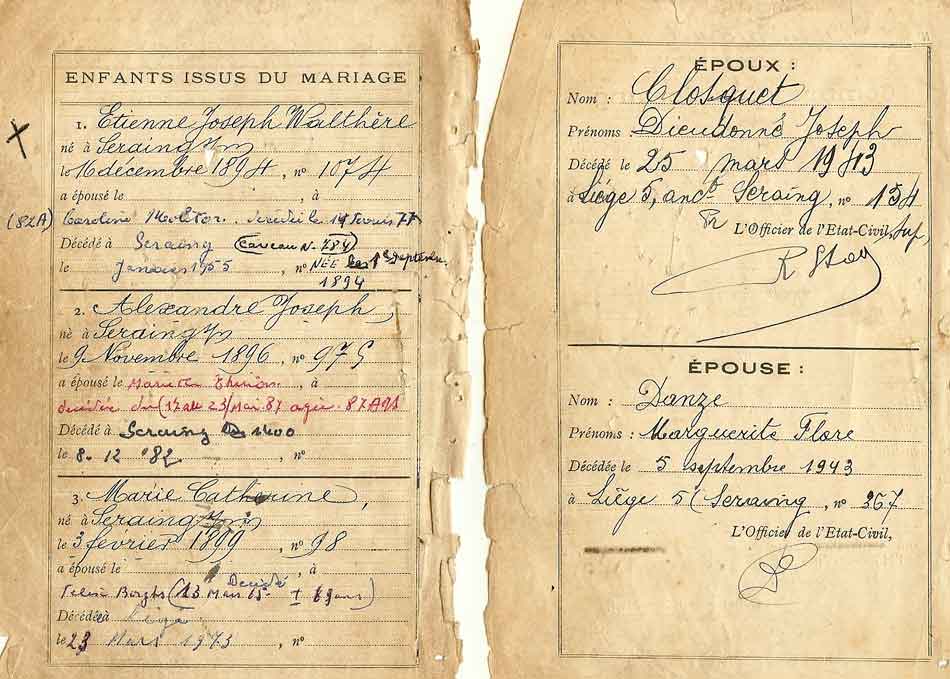 ENFANTS ISSUS DU MARIAGE
1. Etienne Joseph Walthère
né à Seraing
le 16 décembre 1894, nº 1074
a épousé le , à
(82A) Caroline Molitor. décédée le 14 février 77
Décédé à Seraing (Caveau N- 784)
le Janvier 1955, nº NÉE les 1 Septem.
1894
2. Alexandre Joseph,
né à Seraing
le 9 Novembre 1896, nº 975
a épousé le , à
décédée du (17 au 23/Mai. 87 agée. 87 ANS
Décédé à Seraing
le 8-12 '82, nº
3. Marie Catherine,
né à Seraing
le 3 février 1899, nº 98
a épousé le , à
Décédé
(13 Mars 65- 69 ans)
Décédé à Liège
le 23 Mars 1973, nº
ÉPOUX :
Nom : Closquet
Prénoms : Dieudonné Joseph
Décédé le 25 mars 1943
à Liége 5, anct Seraing, nº 154
L'Officier de l'Etat-Civil,
ÉPOUSE :
Nom : Danze
Prénoms : Marguerite Flore
Décédée le 5 septembre 1943
à Liége 5 (Seraing, nº 367
L'Officier de l'Etat-Civil,